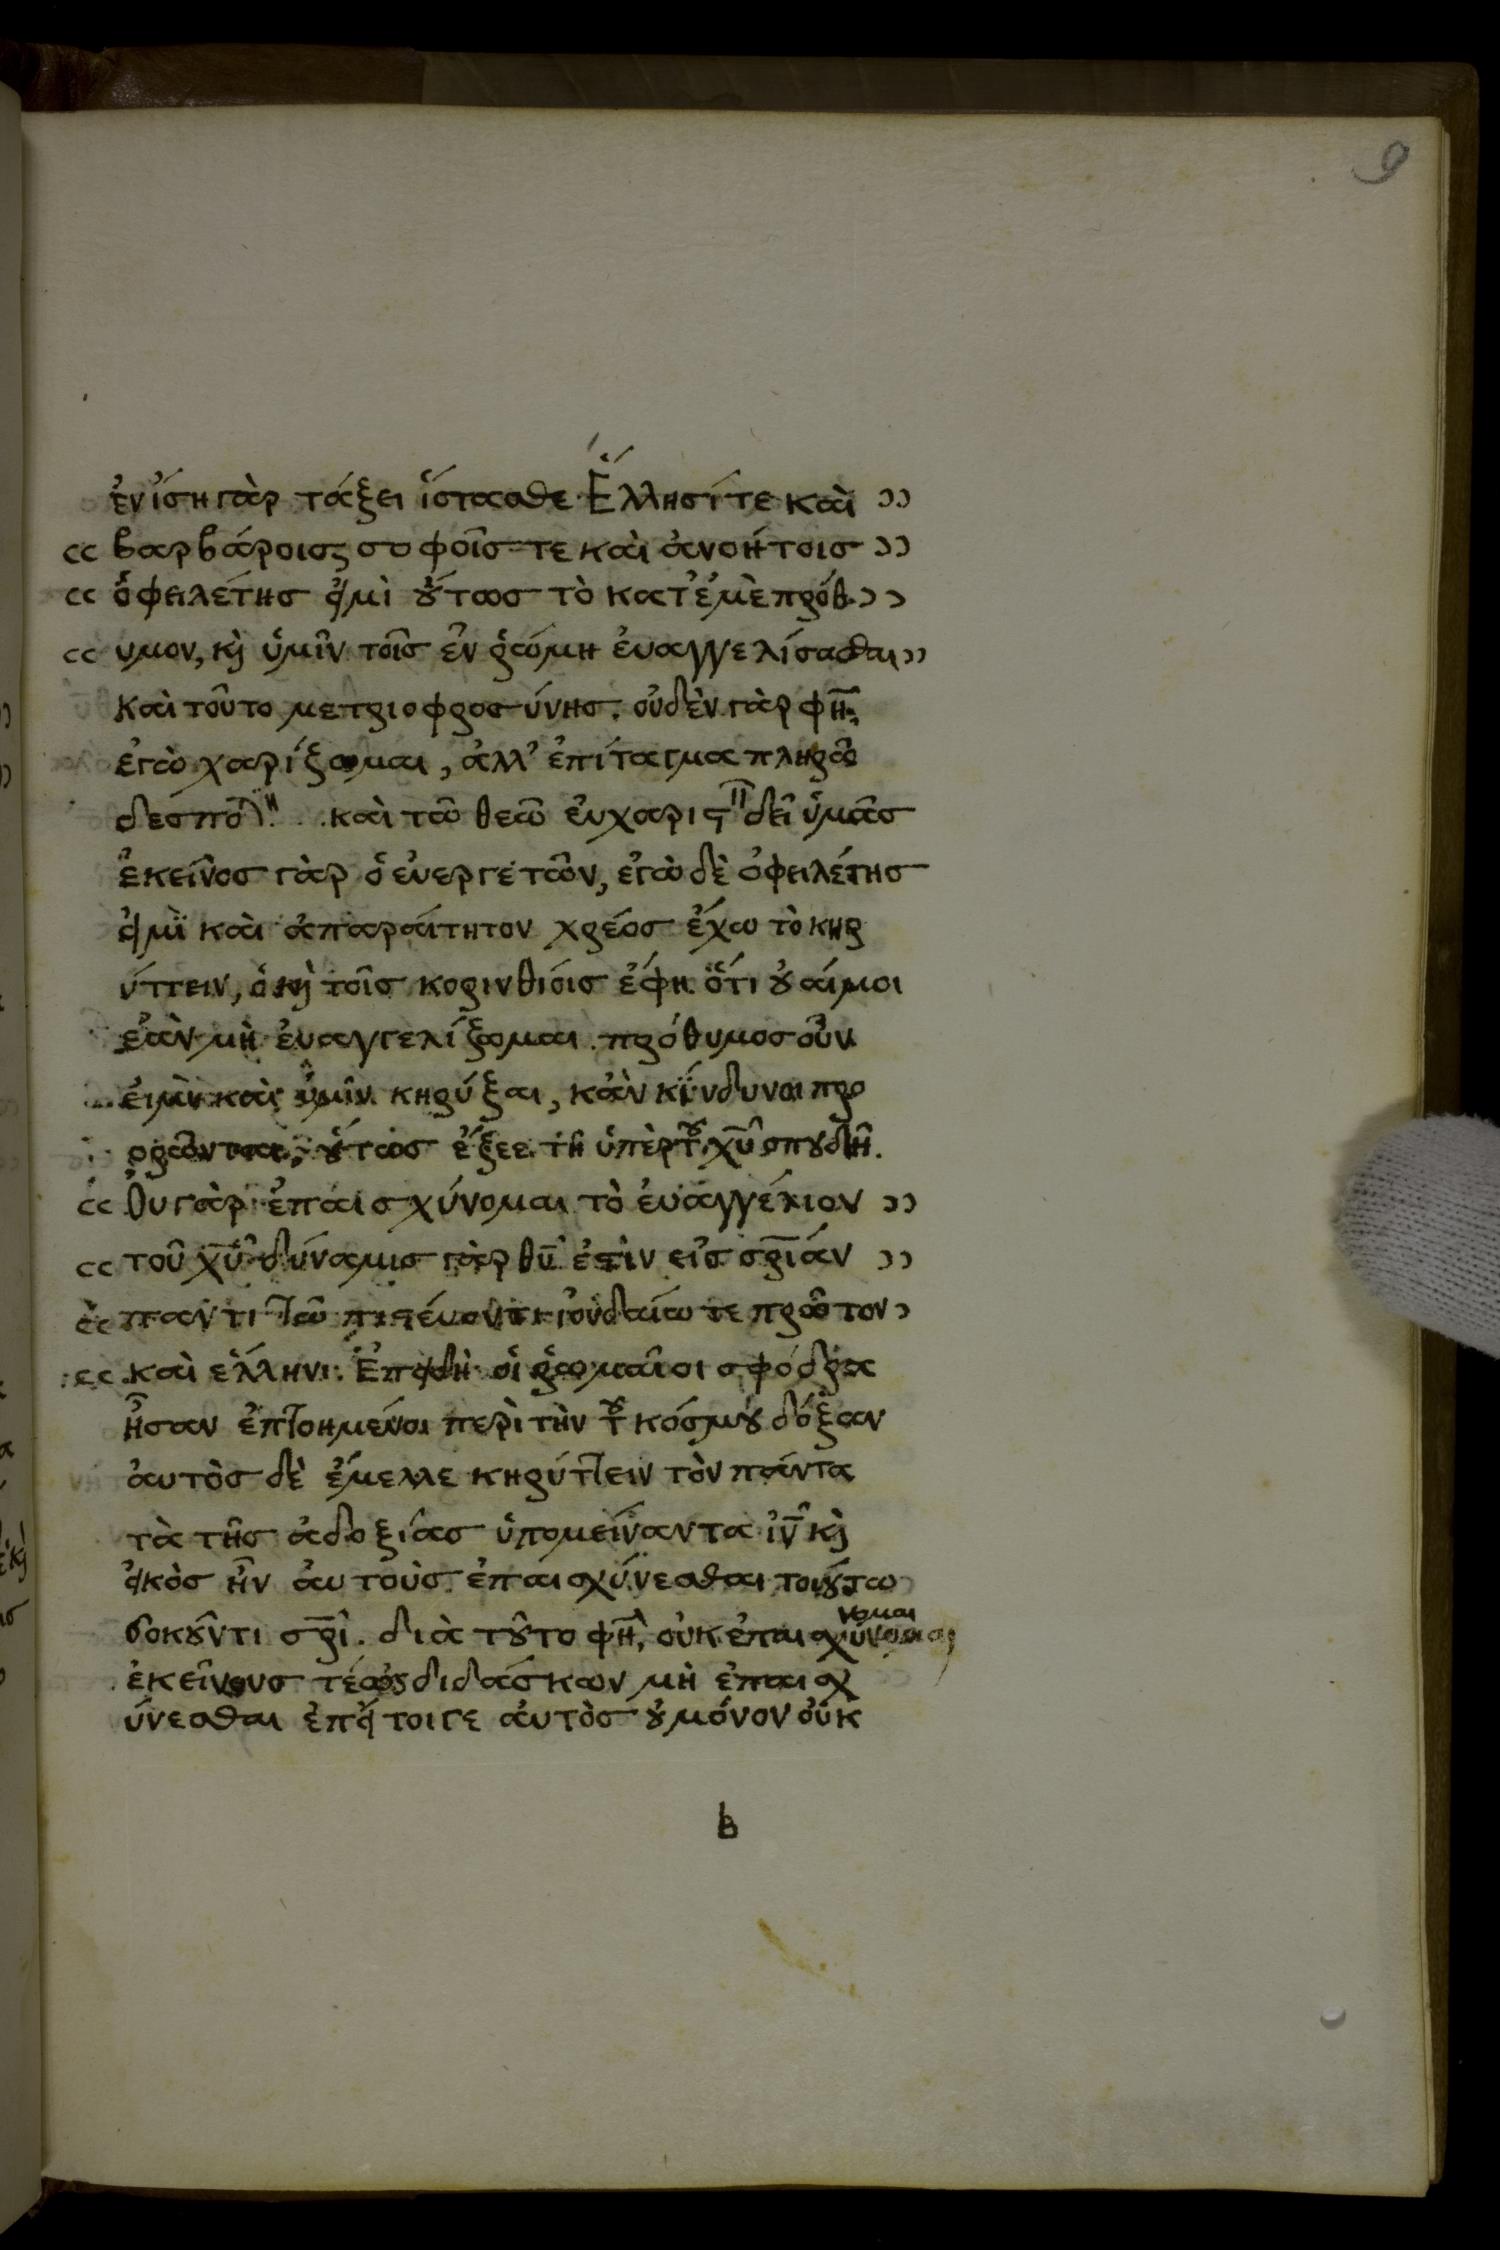 9
ἐν ἴση γὰρ τάξει ἵστασθε Ἕλλησί τε καὶ ››
‹‹ βαρβάροις σοφοῖς τε καὶ ἀνοήτοις ››
‹‹ ὁφειλέτης εἰμὶ ὅυτως τὸ κατ' ἐμὲ πρόθ ››
‹‹ υμον, κὶ ὑμῖν τοῖς ἐν ῥώμη ἐυαγγελίσασθαι ››
καὶ τοῦτο μετριοφροσύνης. οὐδὲν γὰρ φη̅,
ἐγὼ χαρίζομαι, ἀλλ' ἐπίταγμα πληρῶ
δεσπο καὶ τῶ θεῶ ἐυχαριστ δεῖ ὑμᾶς
ἐκεῖνος γὰρ ὁ ἐυεργετῶν, ἐγὼ δὲ ὀφειλέτης
εἰμὶ καὶ ἀπαραίτητον χρέος ἔχω τὸ κηρ
ύττειν, ὁ κὶ τοῖς κορινθίοις ἔφη ὅτι ȣαί μοι
ἐὰν μὴ ἐυαγγελίζομαι. πρόθυμος οὖν
εἰμὶ καὶ ὑμῖν κηρύξαι, κἀν κίνδυνοι προ
ορῶνται, ὅυτως ἔζεε τῆ ὑπὲρ τȣ χ̅υ̅ σπȣδῆ.
‹‹ Ὀυ γὰρ ἐπαισχύνομαι τὸ ἐυαγγέλιον ››
‹‹ τοῦ χ̅υ̅ δύναμις γὰρ θ̅υ̅ ἐστὶν εἰς σ̅ρ̅ιάν ››
‹‹ παντὶ τῶ πιστέυοντι ἰουδαίω τε πρῶτον ›
‹‹ καὶ ἑλληνι. Ἐπειδὴ οἱ ῥωμαῖοι σφόδρα
ἦσαν ἐπτοημένοι περὶ τὴν τȣ κόσμȣ δόξαν
ἀυτὸς δὲ ἔμελλε κηρύττειν τὸν πάντα
τὰ τῆς ἀδοξίας ὑπομείναντα ἰ̅ν̅ κὶ
εἰκὸς ἦν ἀυτοὺς ἐπαισχύνεσθαι τοιȣτω
δοκȣντι σ̅ρ̅ι. διὰ τȣτο φη̅, οὐκ ἐπαισχύνομαι
ἐκείνους τέως διδάσκων μὴ ἐπαισχ
ύνεσθαι ἐπείτοιγε ἀυτὸς ȣ μόνον οὐκ
β